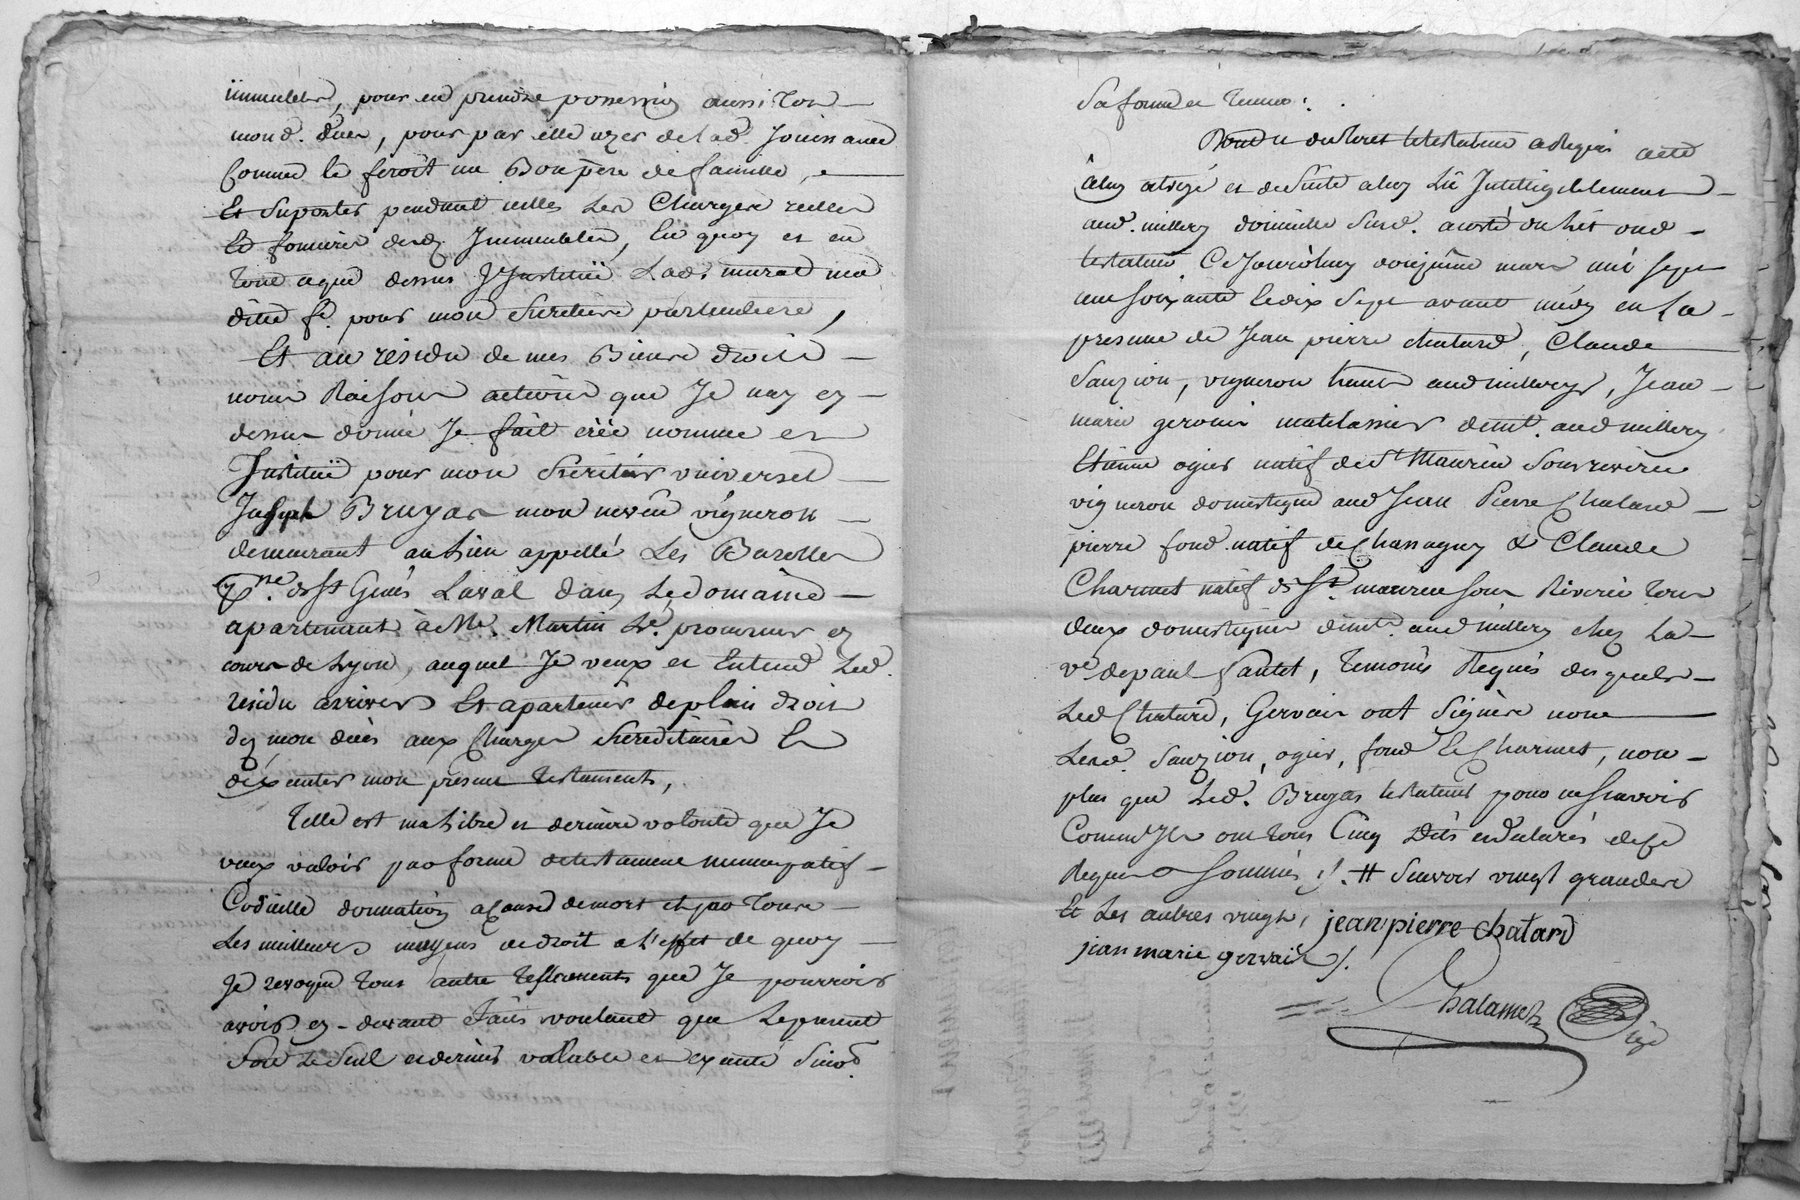 immeubles, pour en prendre possession aussi tot
mond. deces, pour par elle uzer de lad. Jouissance
Comme le feroit un Bon père de famille, e
Et suporter pendant icelles les Charges reelles
Et foncieres desd. Immeubles, En quoy et en
tout ce que dessus J'Jnstituë Lad. murat ma
ditte fe. pour mon héritière particuliere,
Et au résidu de mes Biens droits
noms Raisons actions que Je nay cy
dessus donné Je fait créé nomme et
Jnstituë pour mon héritier universel
Joseph Bruyas mon neveu vigneron
demeurant au lieu appellé Les Barolles
psse. de St Genis Laval dans Le domaine
apartenant à Me. Martin Le. procureur ez
cours de Lyon, auquel Je veux et Entend Led.
residu arriver Et apartenir de plein droit
dez mon deces aux Charges héréditaires Et
dexecuter mon present testament,
Telle est ma Libre et derniere volonté que Je
veux valoir par forme de testament nuncupatif
Codicille donnation a Cause de mort et par tous
Les meilleurs moyens de droit a l'effet de quoy
Je revoque tous autre testaments que Je pourrois
avoir cy-devant faits voulant que Le present
Soit Le Seul et dernier valable et executé Suivt.
Sa forme et teneur.
Dont et du tout Le testateur a Requis acte
à luy octroyé et de Suite a luy Lû Intelligiblement
aud. millery domicille Susd. a costé du lit dud.
testateur. Ce Jourdhuy douzième mars mil sept
cent soixante Ledix Sept avant midy en La
presence de Jean pierre chatard, Claude
Sauzion, vigneron habits audmillery, Jean
marie gervais matelassier demt. aud millery
Etienne ogier natif de St Maurice Sous riverie
vigneron domestique aud Jean Pierre Chatard
pierre fond natif de Chassagny & Claude
Charmet natif de St. maurice sous Riverie tous
deux domestiques demt. aud millery chez La
ve. de paul gautet, temoins Requis desquels
Led Chatard, Gervais ont Signére non
Lesd. Sauzion, ogier, fond Et Charmet, non
plus que Led. Bruyas testateur pour ne scavoir
Comme Jls ont tous Cinq Dits et declarés de ce
Requis & sommés ./. # Scavoir vingt grandere
Et Les autres vingt, jean pierre chatard
jean marie gervais ./.
Chalamel